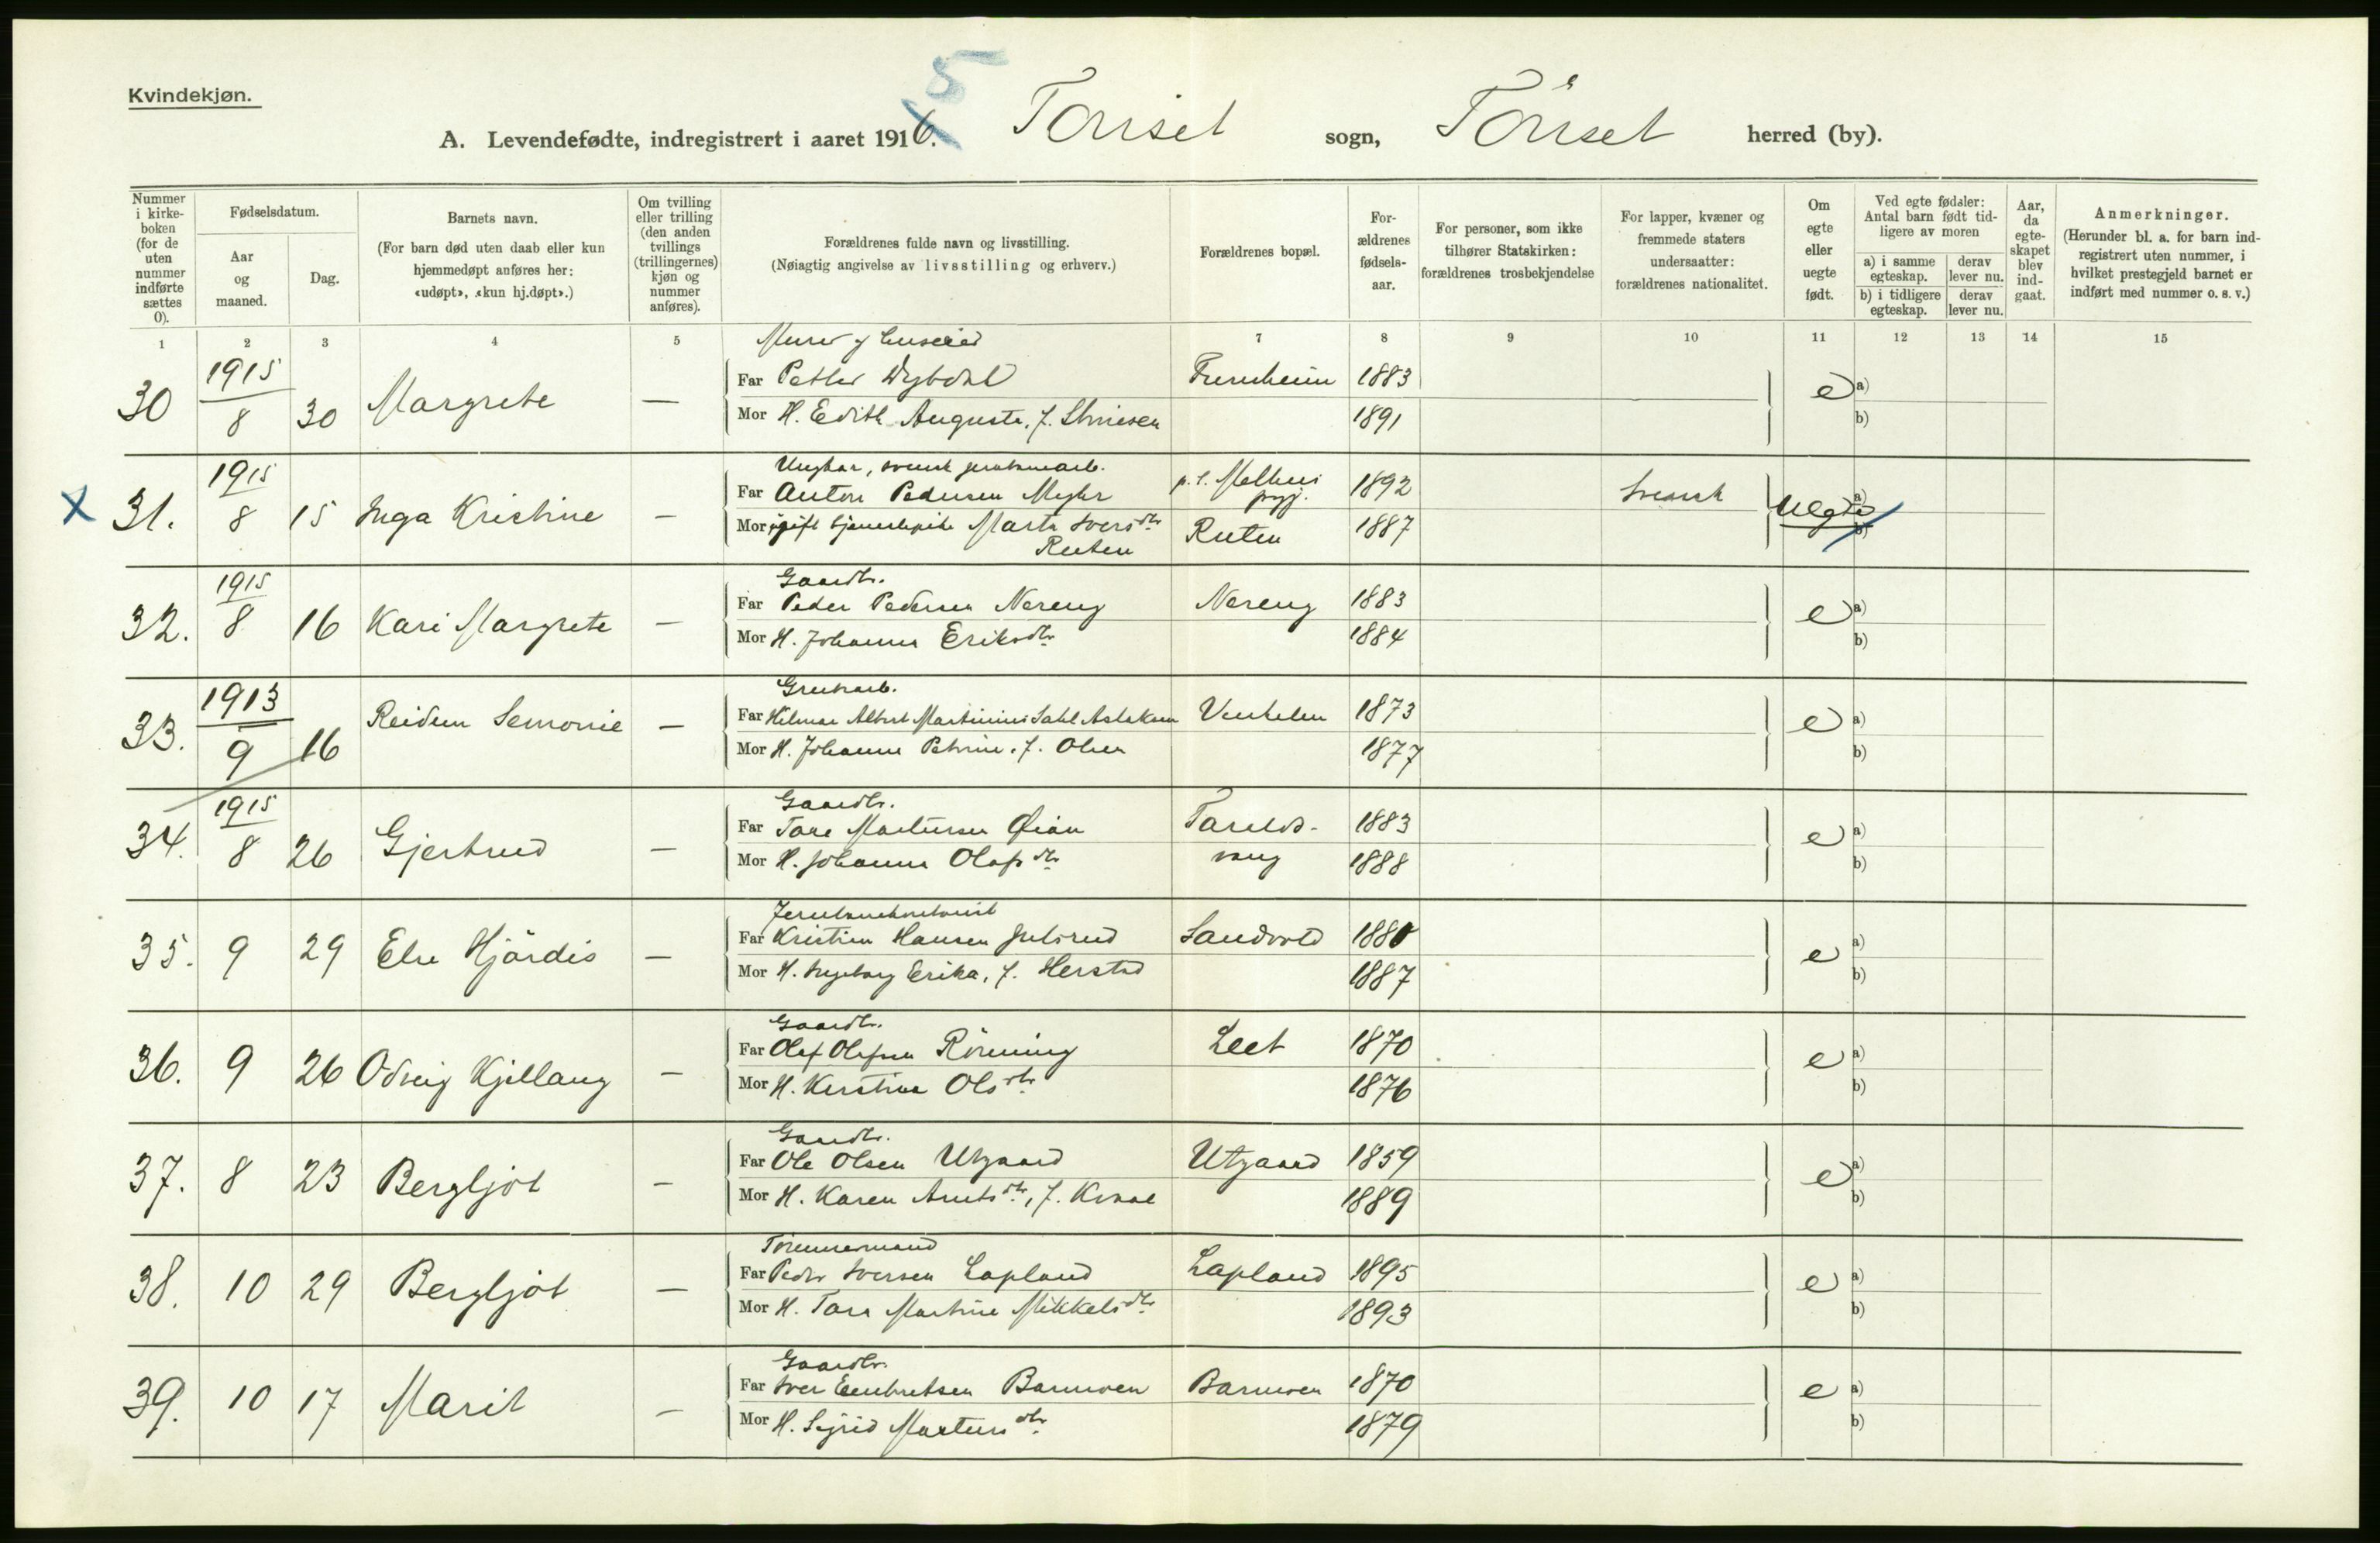 Kvindekjøn.
5
A. Levendefødte, indregistrert i aaret 1916. Tönset sogn, Tönset herred (by).
Nummer i kirkeboken (for de uten nummer indførte sættes 0).
Fødselsdatum.
Aar og maaned.
Dag.
Barnets navn.
(For barn død uten daab eller kun hjemmedøpt anføres her: «udøpt», «kun hj.døpt».)
Om tvilling eller trilling (den anden tvillings (trillingernes) kjøn og nummer anføres).
Forældrenes fulde navn og livsstilling.
(Nøiagtig angivelse av livsstilling og erhverv.)
Forældrenes bopæl.
Forældrenes fødselsaar.
For personer, som ikke tilhører Statskirken: forældrenes trosbekjendelse
For lapper, kvæner og fremmede staters undersaatter: forældrenes nationalitet.
Om egte eller uegte født.
Ved egte fødsler: Antal barn født tidligere av moren
a) i samme egteskap.
derav lever nu.
b) i tidligere egteskap.
derav lever nu.
Aar, da egteskapet blev indgaat.
Anmerkninger.
(Herunder bl. a. for barn indregistrert uten nummer, i hvilket prestegjeld barnet er indført med nummer o. s. v.)
1 2 3 4 5 7 8 9 10 11 12 13 14 15
Murer
30 1915 8 30 Margrete — Far Petter 1883 e a)
Mor H. Edith Auguste, f. 1891 b)
Ungkar, svensk
X 31. 1915 8 15 Inga Kristine — Far Anton Pedersen p. t. Melhus 1892 Svensk Uegte a)
prgj.
Mor ugift tjenestepike Marta Iversdtr Ruten 1887 b)
Ruten
Gaardbr.
32. 1915 8 16 Kari Margrete — Far Peder Pedersen Nereng Nereng 1883 e a)
Mor H. Johanna Eriksdtr. 1884 b)
Grubearb.
33. 1913 9 16 Reidun — Far Hilmar Albert Martinius 1873 e a)
Mor H. Johanne Petrine, f. Olsen 1877 b)
Gaardbr.
34. 1915 8 26 Gjertrud — Far Tore Øian 1883 e a)
Mor H. Johanna Olafsdtr vang 1888 b)
35. 9 29 Else Hjördis — Far Kristian Hansen Julsrud Sandvold 1880 e a)
Mor H. Ingeborg Erika, f. Herstad 1887 b)
Gaardbr.
36. 9 26 Odveig Kjellaug — Far Olaf Olafsen Rönning Leet 1870 e a)
Mor H. Kerstina Olsdtr. 1876 b)
Gaardbr.
37. 8 23 Bergljot — Far Ole Olsen Utgaard Utgaard 1859 e a)
Mor H. Karen dtr., f. 1889 b)
Tömmermand
38. 10 29 Bergljot — Far Peder Iversen Lapland Lapland 1895 e a)
Mor H. Tora Martine Mikkelsdtr 1893 b)
Gaardbr.
39. 10 17 Marit — Far Iver Embretsen Barmoen Barmoen 1870 e a)
Mor H. Sigrid dtr. 1879 b)